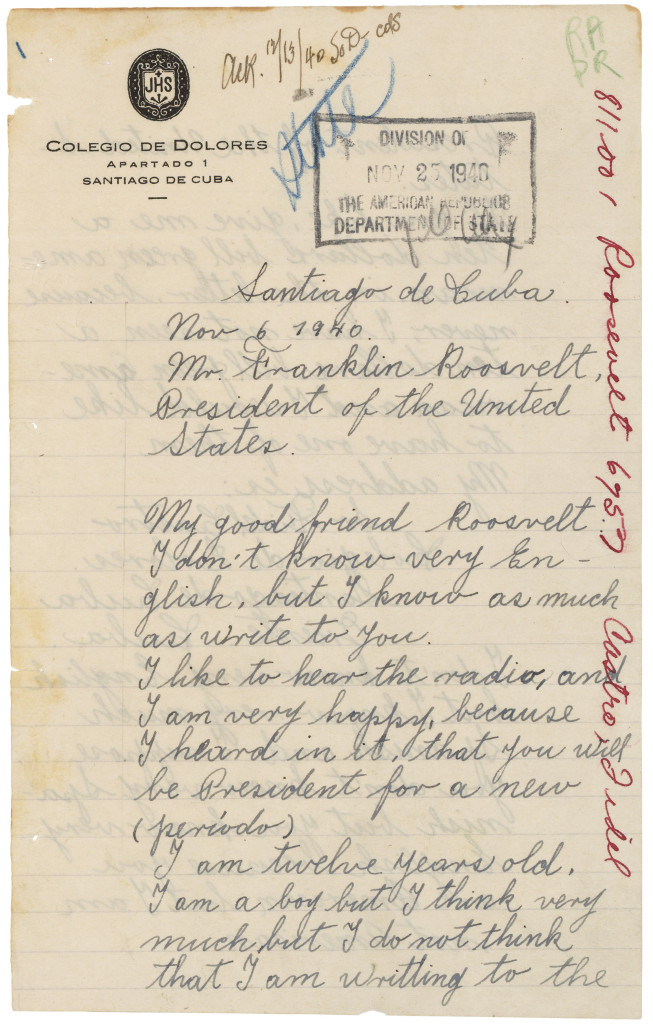 Ack. 12/13/40 SoD-cdS
RA
PR
JHS
COLEGIO DE DOLORES
APARTADO 1
SANTIAGO DE CUBA
State
DIVISION OF
NOV 25 1940
THE AMERICAN REPUBLICS
DEPARTMENT OF STATE
811.001 Roosevelt Castro, Fidel
Santiago de Cuba.
Nov 6 1940.
Mr. Franklin Roosvelt,
President of the United
States.
My good friend Roosvelt
I don't know very En-
glish, but I know as much
as write to you.
I like to hear the radio, and
I am very happy, because
I heard in it, that you will
be President for a new
(período)
I am twelve years old.
I am a boy but I think very
much, but I do not think
that I am writting to the